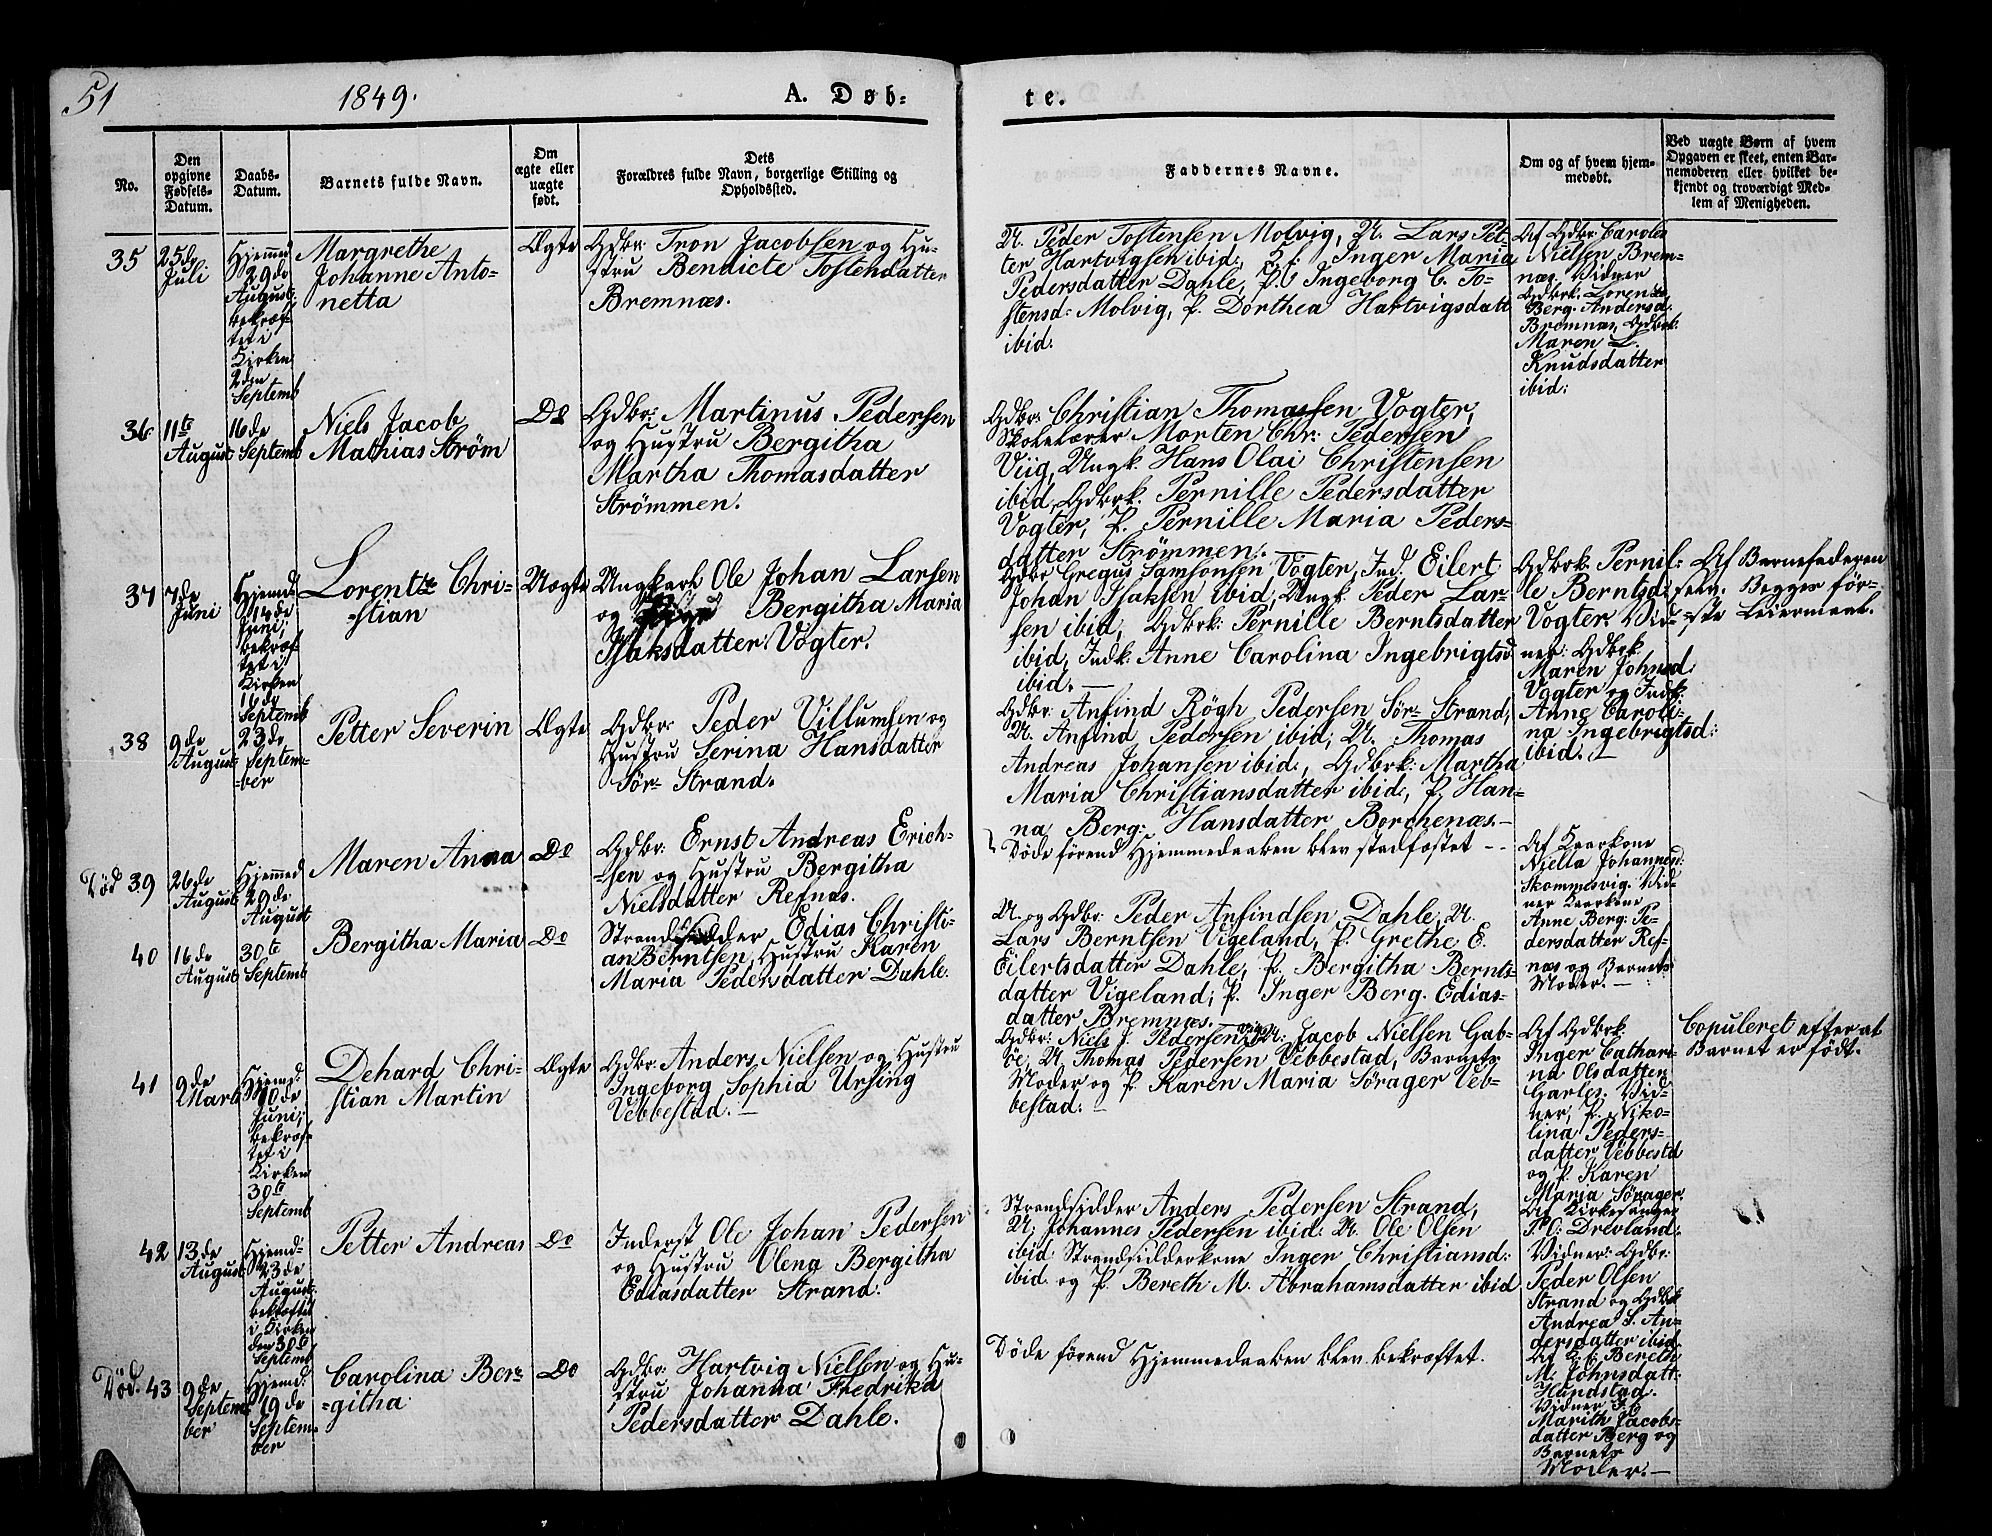 51
1849.
A. Døb-
te.
No.
Den
opgivne
Fødsels-
Datum.
Daabs-
Datum.
Barnets fulde Navn.
Om
ægte eller
uægte
født.
Dets
Forældres fulde Navn, borgerlige Stilling og
Opholdssted.
Faddernes Navne.
Om og af hvem hjem-
medøbt.
Ved uægte Børn af hvem
Opgaven er skeet, enten Bar-
nemoderen eller hvilket be-
kjendt og troværdigt Med-
lem af Menigheden.
35
25de
Juli
Hjemmed
29de
August;
bekræf-
tet i
Kirken
2den
Septemb
Margrethe
Johanne Anto-
netta
Ægte
Gdbr: Tron Jacobsen og Hu-
stru Bendicte Tostensdatter
Bremnæs.
U. Peder Tostensen Molvig, U. Lars Pet-
ter Hartvigsen ibid, Inger Maria
Pedersdatter Dahle, P. Ingeborg C. To-
stensd: Molvig, P. Dorthea Hartvigsdatt
ibid.
Af Gdbr: Carolus
Nielsen Brem-
næs. Vidner
Gdbrk. Lorentze
Berg. Andersd.
Bremnæs, Gdbrk:
Maren L.
Knudsdatter
ibid:
36
11te
August
16de
Septemb
Niels Jacob
Mathias Strøm
Do
Gdbr: Martinus Pedersen
og Hustru Bergitha
Martha Thomasdatter
Strømmen.
Gdbr: Christian Thomassen Vogter,
Skolelærer Morten Chr: Pedersen
Viig, Ungk. Hans Olai Christensen
ibid, Gdbrk. Pernille Pedersdatter
Vogter, P. Pernille Maria Peders-
datter Strømmen.
37
7de
Juni
Hjemd:
14de
Juni;
bekræf
tet i
Kirken
16de
Septemb
Lorentz Chri-
stian
Uægte
Ungkarl Ole Johan Larsen
og Bergitha Maria
Isaksdatter Vogter.
Gdbr Gregus Samsonsen Vogter, Ind. Eilert
Johan Isaksen ibid, Ungk Peder Lar-
sen ibid, Gdbrk: Pernille Berntsdatter
ibid, Indk: Anne Carolina Ingebrigtsd
ibid. —
Gdbrk: Pernil-
le Berntsd:
Vogter. Vid-
ner: Gdbrk
Maren Johnsd
Vogter og Indk:
Anne Caroli-
na Ingebrigtsd:
ibid. —
Af Barnefaderen
seen. Begges før-
ste Leiermaal.
38
9de
August
23de
Septem-
ber
Petter Severin
Ægte
Gdbr: Peder Villumsen og
Hustru Serina Hansdatter
Sør-Strand.
Gdbr: Anfind Røgh Pedersen Sør-Strand,
U. Anfind Pedersen ibid; U. Thomas
Andreas Johansen ibid, Gdbrk: Martha
Maria Christiansdatter ibid, P. Han-
na Berg: Hansdatter Borchenæs. —
Død 39
26de
August
Hjemmed
29de
August
Maren Anna
Do
Gdbr: Ernst Andreas Erich-
sen og Hustru Bergitha
Nielsdatter Refnæs.
Døde førend Hjemmedaaben blev stadfæstet - -
Af Kaarkone
Niella Johannesd:
Skommesvig. Vid-
ner Kaarkone
Anne Berg: Pe-
dersdatter Ref-
næs og Barnets
Moder. —
40
16de
August
30te
Septemb
Bergitha Maria
Do
Strandsidder Edias Christi-
an Berntsen, Hustru Karen
Maria Pedersdatter Dahle.
U. og Gdbr: Peder Anfindsen Dahle, U.
Lars Berntsen Vigeland, P. Grethe E.
Eilertsdatter Dahle, P. Bergitha Bernts-
datter Vigeland; P. Inger Berg. Edias-
datter Bremnæs. —
41
9de
Marts
Hjemd:
10de
Juni;
bekræf
tet i
Kirken
30te
Septemb
Dehard Chri-
stian Martin
Ægte
Gdbr: Anders Nielsen og Hustru
Ingeborg Sophia Ursing
Vebbestad. —
Gdbr: Niels J. Pedersen U: Jacob Nielsen Gab-
øe, U Thomas Pedersen Vebbestad, Barnets
Moder og P. Karen Maria Sørager Veb-
bestad: —
Af Gdbrk.
Inger Cathari-
na Olsdatter
Garles. Vid-
ner, P. Niko-
lina Peders-
datter Vebbestd
og P. Karen
Maria Sørager.
Copuleret efter at
Barnet er født.
42
13de
August
Hjemd-
23de
August:
bekræftet
i Kirken
den 30te
Septemb
Petter Andreas
Do
Inderst Ole Johan Pedersen
og Hustru Olena Bergitha
Ediasdatter Strand.
Strandsidder Anders Pedersen Strand,
U, Johannes Pedersen ibid: U. Ole Olsen
ibid: Strandsidderkone Inger Christiansd:
ibid. og P. Bereth M. Abrahamsdatter ibid
Af Kirkesanger
P. O: Drevland.
Vidner: Gdbr:
Peder Olsen
Strand og Gdbrk
Andrea S. An-
dersdatter ibid
Død. 43
9de
Septem-
ber
Hjemd:
19de
Septem-
ber
Carolina Ber-
githa
Do
Gdbr: Hartvig Nielsen og Hu-
stru Johanna Fredrika
Pedersdatter Dahle.
Døde førend Hjemmedaaben blev bekræftet.
Bereth
M. Johnsdatt:
Hundstad.
Vidner
Marith Jacobs-
datter Berg og
Barnets
Moder. —